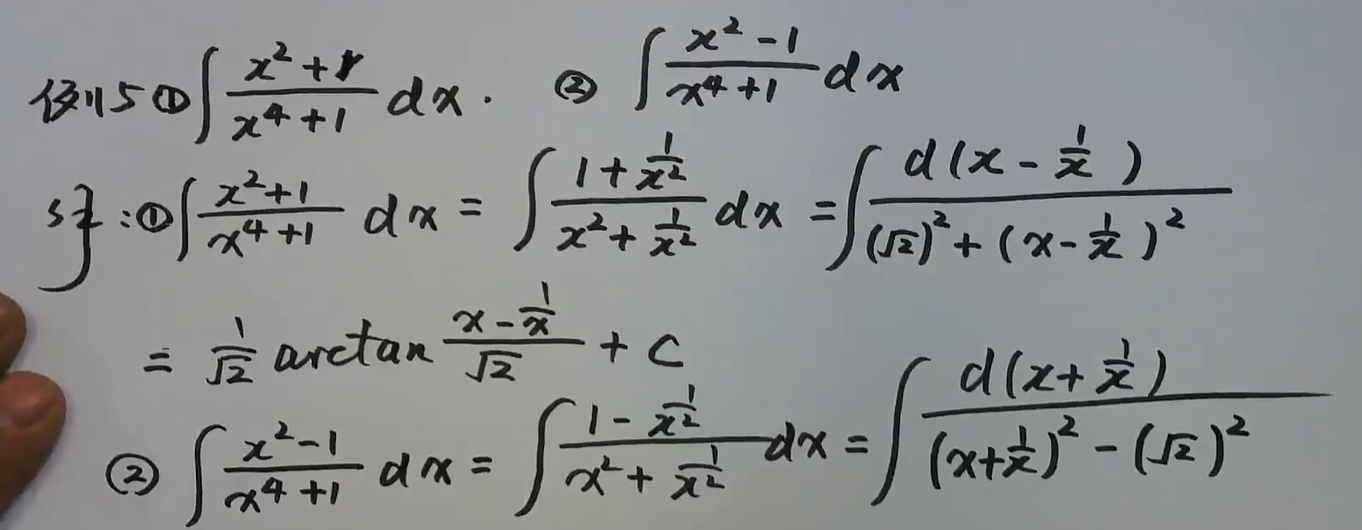 例5 ① ∫ (x²+1)/(x⁴+1) dx. ② ∫ (x²-1)/(x⁴+1) dx
解:① ∫ (x²+1)/(x⁴+1) dx = ∫ (1+1/x²)/(x²+1/x²) dx = ∫ d(x-1/x)/((√2)²+(x-1/x)²)
= 1/√2 arctan (x-1/x)/√2 + C
② ∫ (x²-1)/(x⁴+1) dx = ∫ (1-1/x²)/(x²+1/x²) dx = ∫ d(x+1/x)/((x+1/x)²-(√2)²)